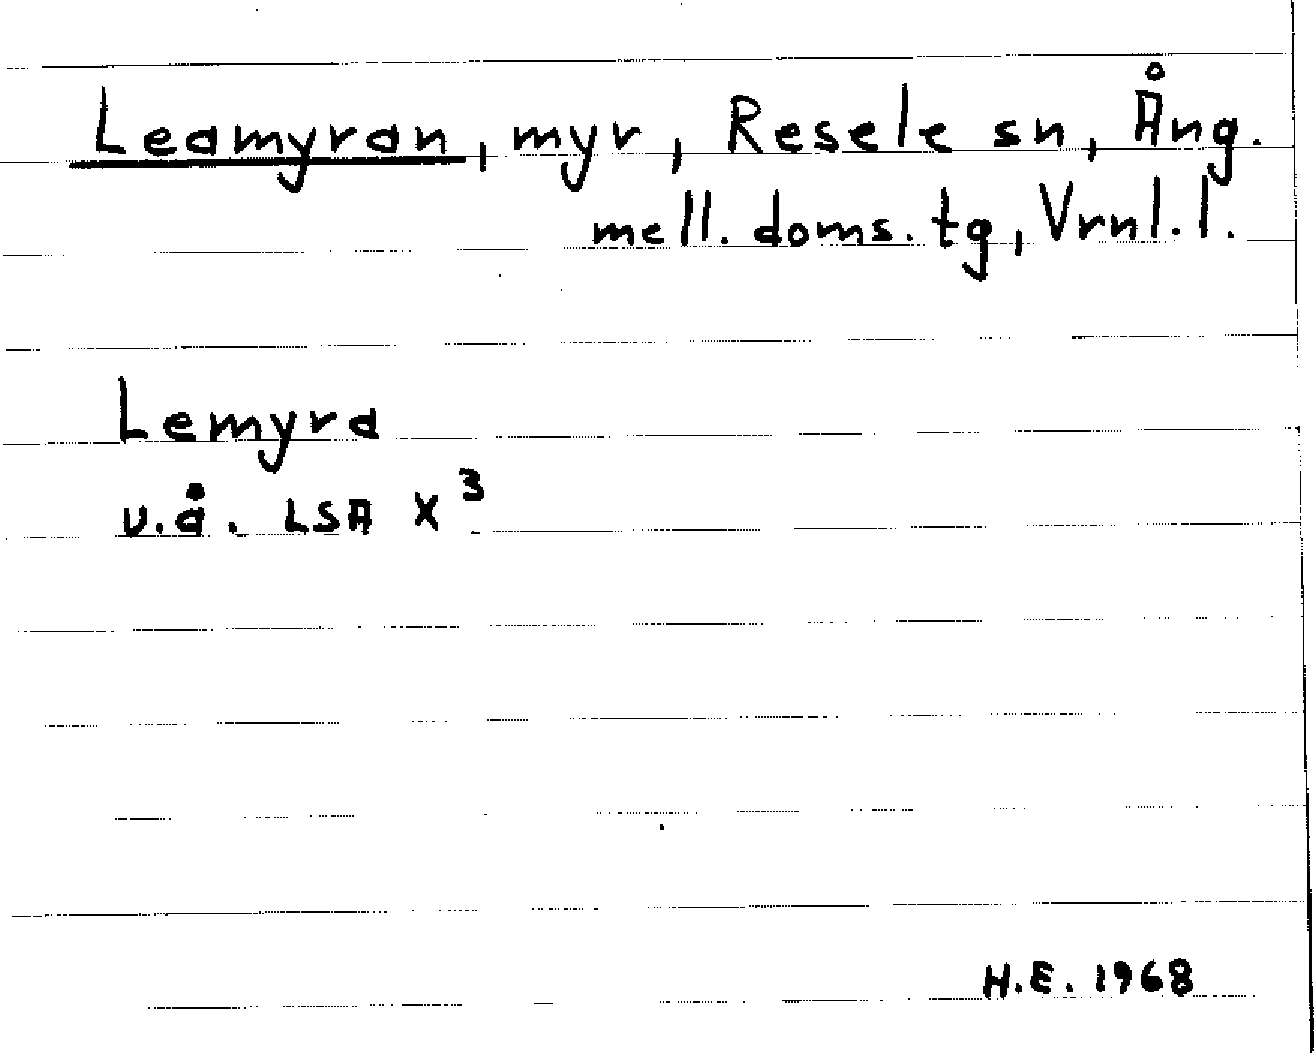 Leamyran, myr, Resele sn, Ång.
mell. doms. tg, Vrnl. l.
Lemyra
u.å. LSA X³
H.E. 1968